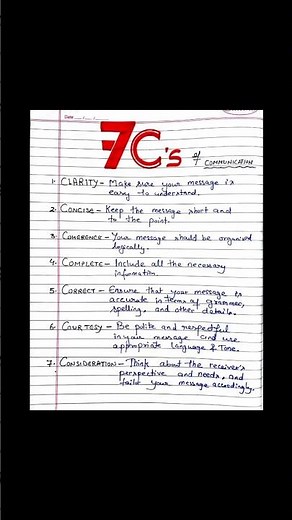 Date
7C's of
COMMUNICATION
1. CLARITY - Make sure your message is
easy to understand.
2. CONCISE - Keep the message short and
to the point.
3. COHERENCE - Your message should be organized
logically.
4. COMPLETE - Include all the necessary
information.
5. CORRECT - Ensure that your message is
accurate in terms of grammer,
spelling, and other details.
6. COURTESY - Be polite and respectful
in your message and use
appropriate language & Tone.
7. CONSIDERATION - Think about the receiver's
perspective and needs, and
tailor your message accordingly.